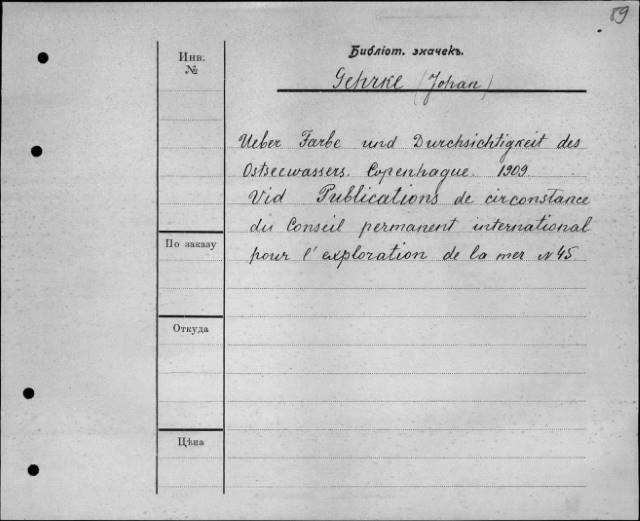 59
Библіот. значекъ.
Инв. №
Gehrke (Johan)
Ueber Farbe und Durchsichtigkeit des
Ostseewassers. Copenhague. 1909
Vid Publications de circonstance
du Conseil permanent international
pour l'exploration de la mer N 45
По заказу
Откуда
Цѣна